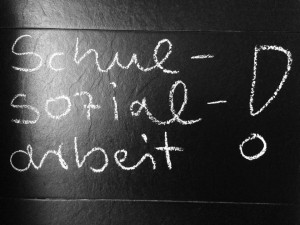 Schul-
sozial-
arbeit !